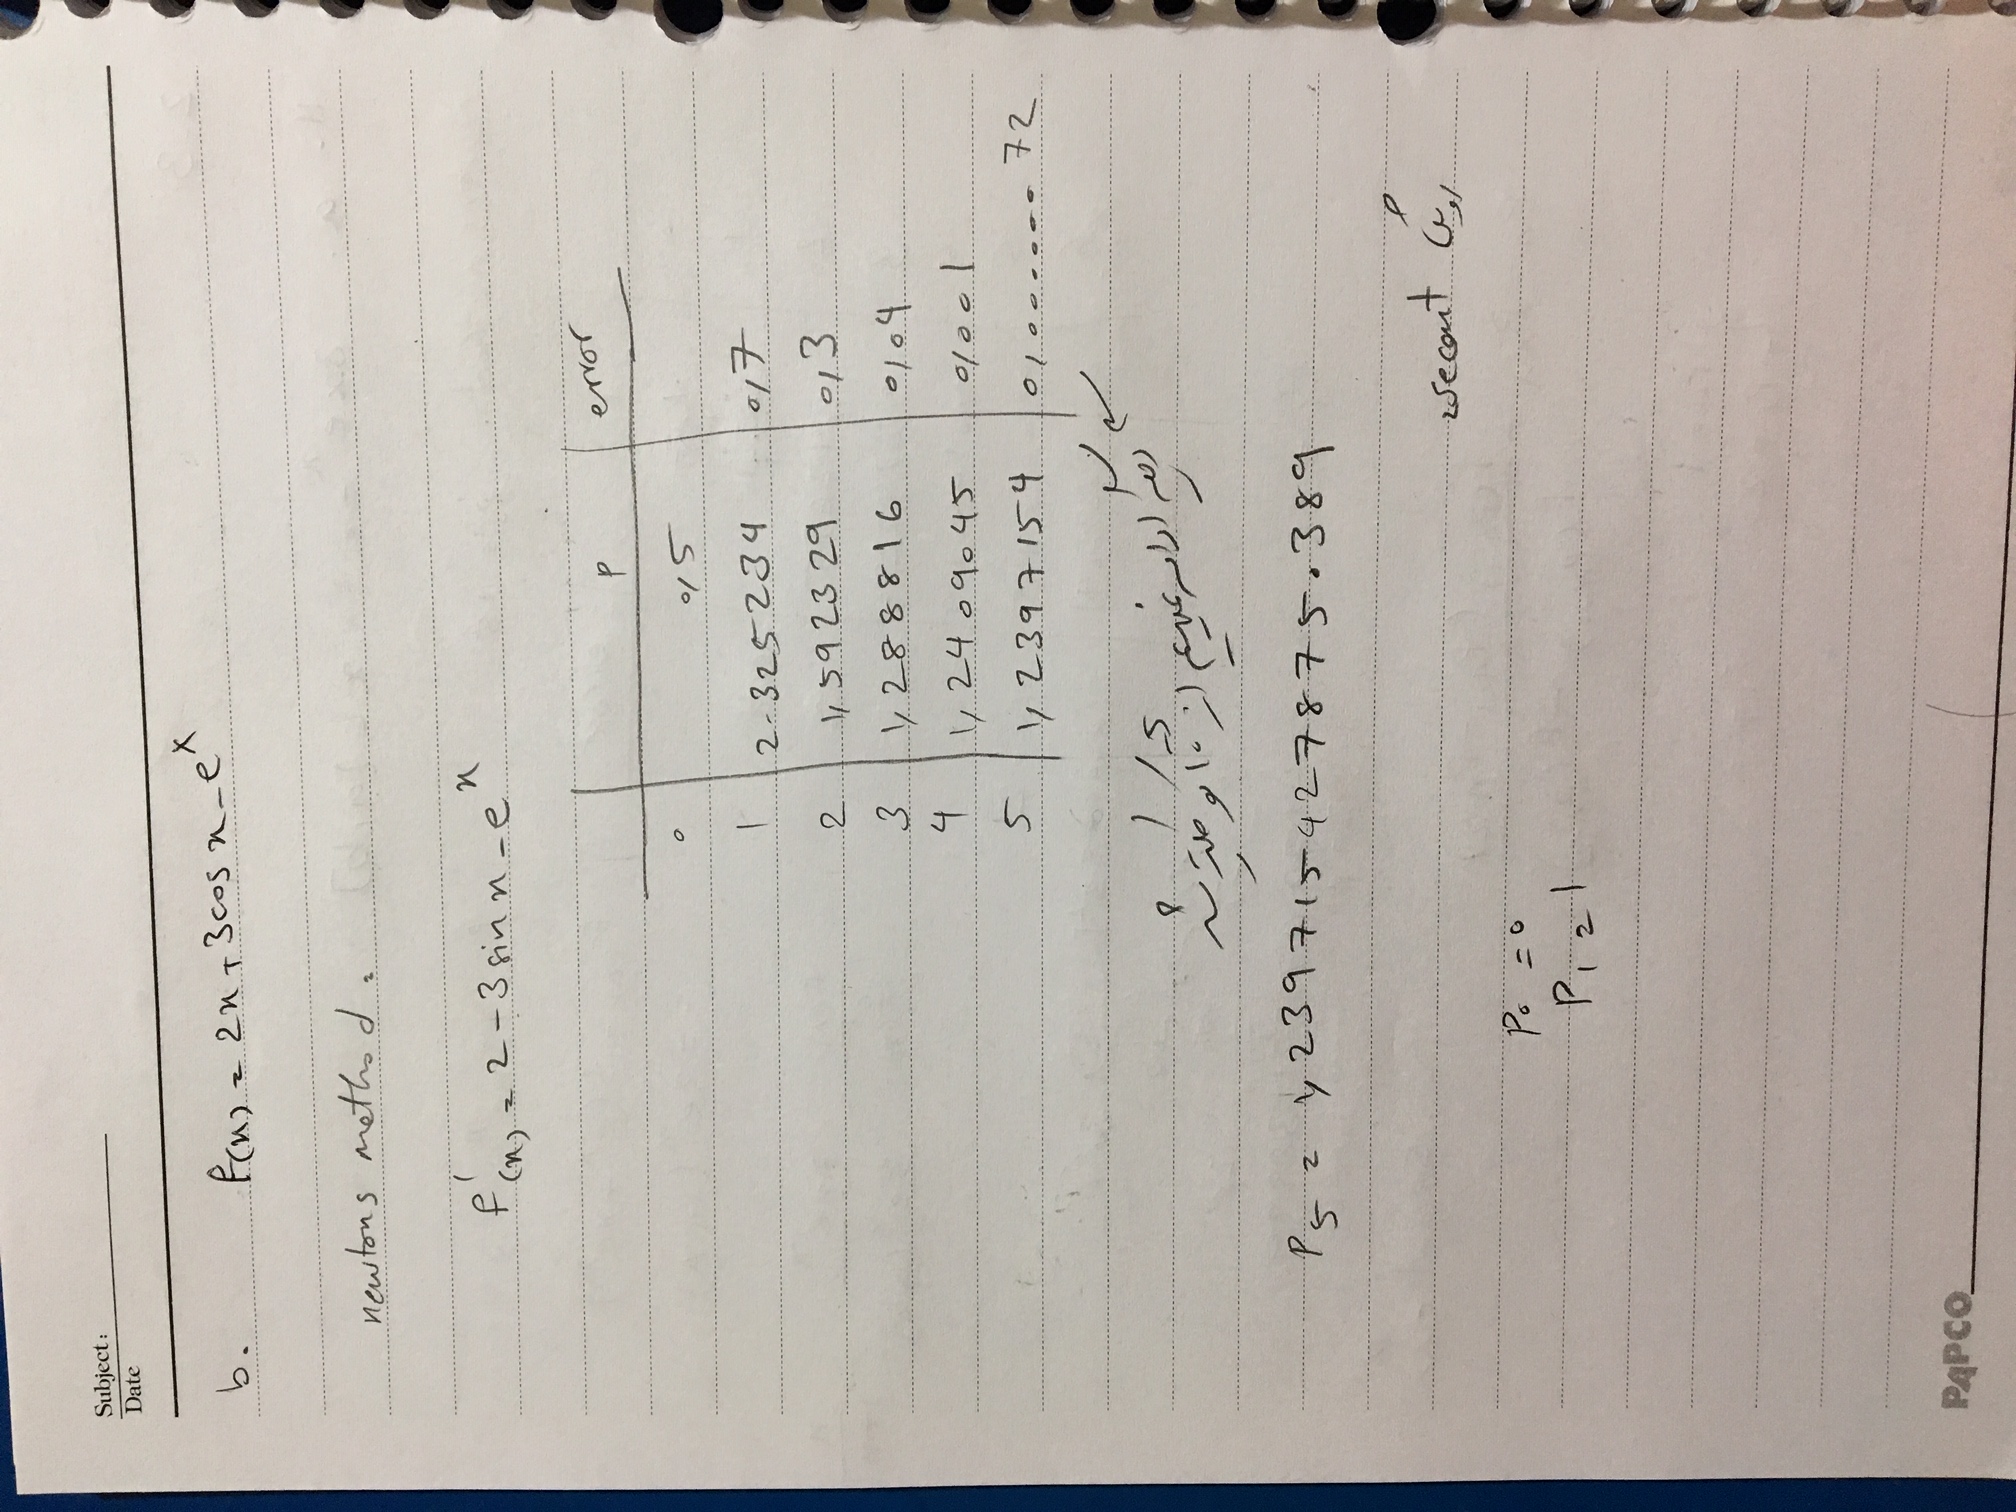 Subject:
Date
b. f(x) = 2x + 3cos x - e^x
newtons method:
f'(x) = 2 - 3 sin x - e^x
p error
0 0,5
1 2.325234 0,7
2 1,592329 0,3
3 1,288816 0,04
4 1,2409045 0,001
5 1,2397154 0,000000 72
دیگر ادامه نمیدهیم از 10^-5 کوچکتر شد
P5 = 1,2397154278750389
روش secant
P0 = 0
P1 = 1
PAPCO